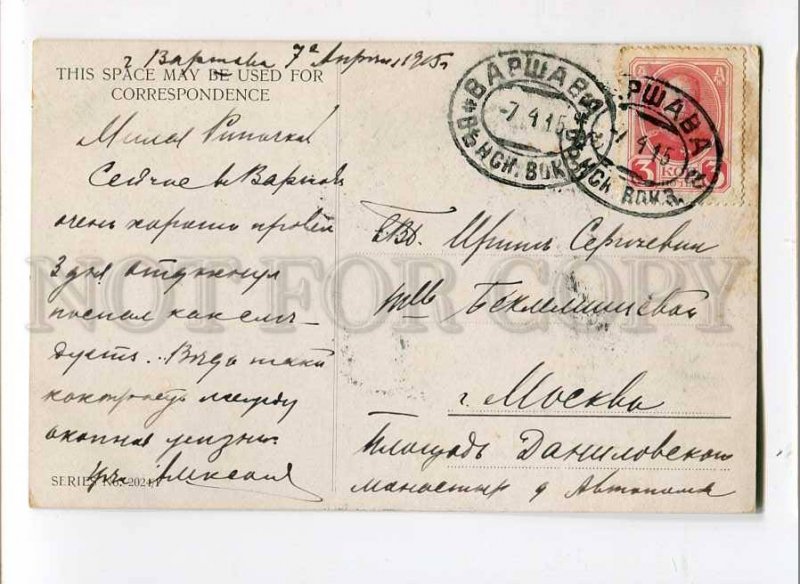 г Варшава 7е Апреля 1915г
THIS SPACE MAY BE USED FOR
CORRESPONDENCE
Милая Риночка
Сейчас въ Варшавѣ
очень хорошо провелъ
3 дня отдохнулъ
поспал как слѣ-
дуетъ. Вѣдь
контрастъ между
окопная жизнь
SERIES No. 2024/1
ВАРШАВА
-7 4 15
ВѢНСК. ВОКЗ.
ВАРШАВА
-7 4 15
ВѢНСК. ВОКЗ.
3 КОП 3
Евб. Иринѣ Сергѣевнѣ
Беклемишевой
г. Москва
Площадь Даниловскаго
монастыря д Автономова
NOT FOR COPY